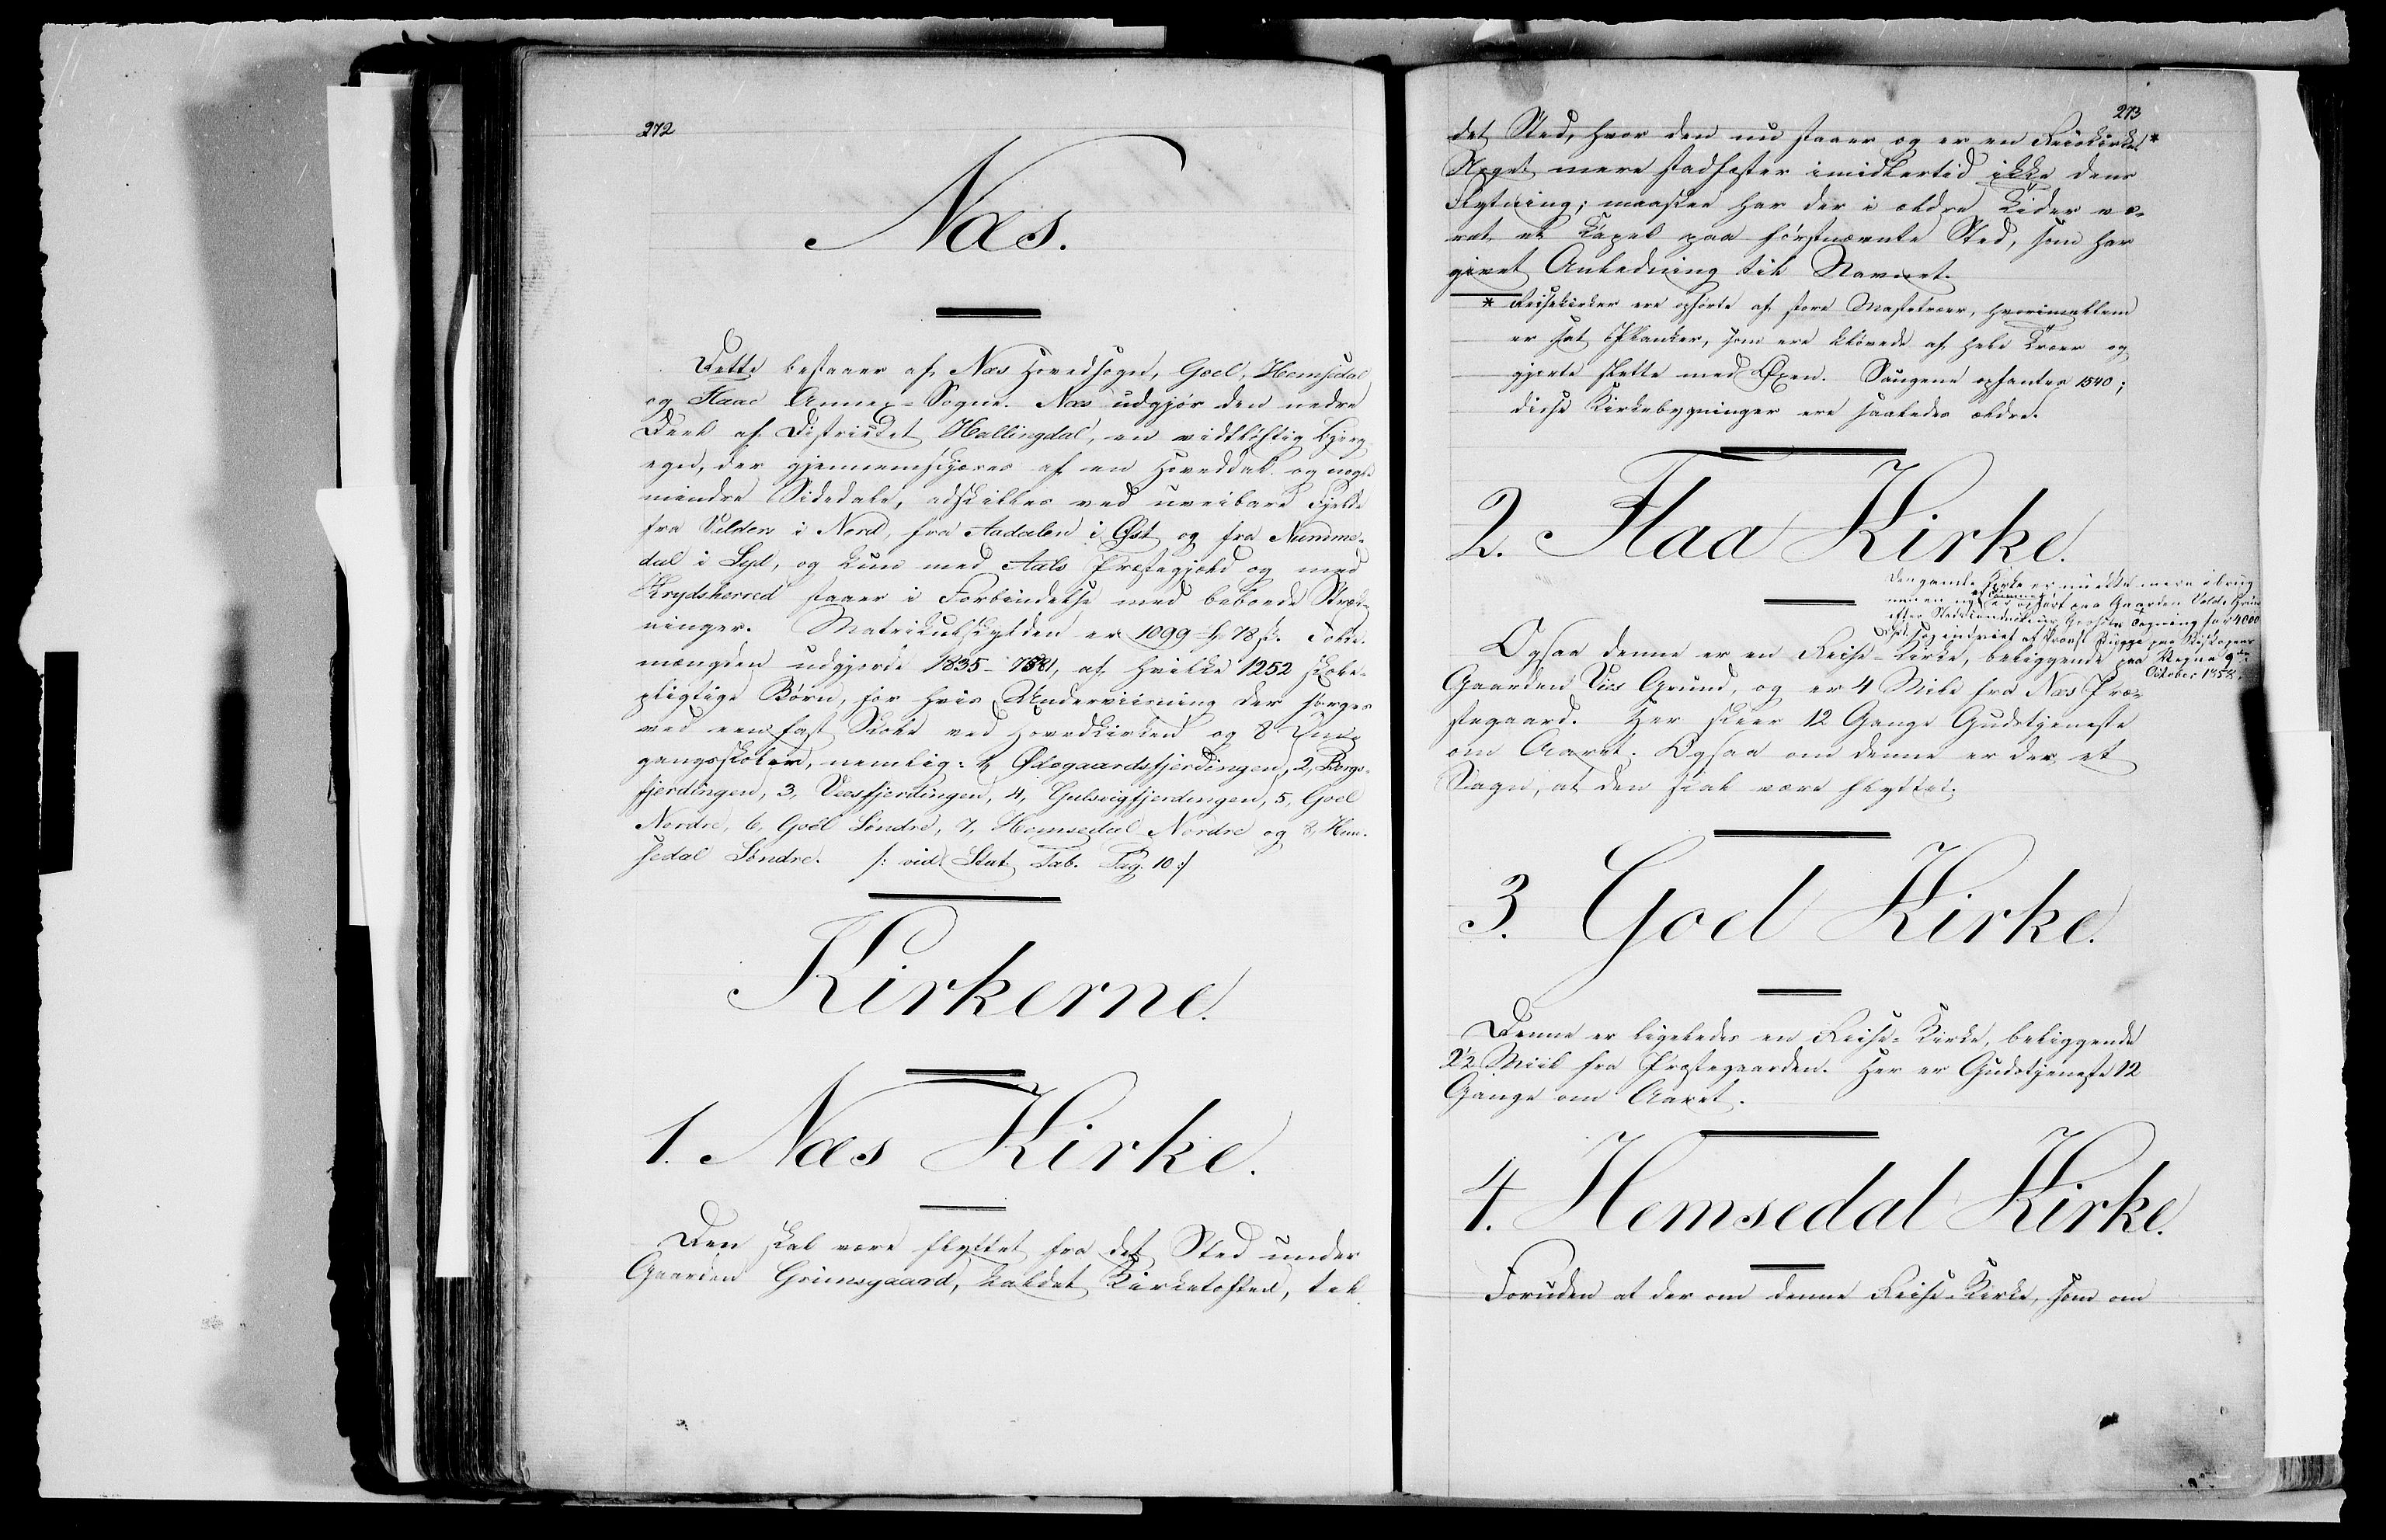 272
Næs.
Dette bestaaer af Næs Hovedsogn, Goel, Hemsedal
og Flaae Annex-Sogne. Næs udgjør den nedre
Deel af Districtet Hallingdal, en vidtløftig Bjerg-
egn, der gjennemskjæres af en Hoveddal og nogle
mindre Sidedale, adskilles ved uveibare Fjelde
fra Valders i Nord, fra Aadalen i Øst og fra Numme-
dal i Syd, og kun med Aals Præstegjeld og med
Krydsherred staaer i Forbindelse med beboede Stræk-
ninger. Matrikulskylden er 1099 78 s. Folke-
mængden udgjorde 1835 - 7581, af hvilke 1252 skole-
pligtige Børn, for hvis Underviisning der sørges
ved een fast Skole ved Hovedkirken og 8 Om-
gangsskoler, nemlig: 1, Ødegaardsfjerdingen, 2, Borgs-
fjerdingen, 3, Veesfjerdingen, 4, Gulsvigfjerdingen, 5, Goel
Nordre, 6, Goel Søndre, 7, Hemsedal Nordre og 8, Hem-
sedal Søndre. /: vid. Stat. Tab. Pag. 10 :/
Kirkerne.
1. Næs Kirke.
Den skal være flyttet fra det Sted under
Gaarden Grimsgaard, kaldet Kirketoften, til
273
det Sted, hvor den nu staaer og er en Reisekirke*
Noget mere stadfæster imidlertid ikke dens
Flytning; maaskee har der i ældre Tider væ-
ret et Kapel paa førstnævnte Sted, som har
givet Anledning til Navnet.
* Reisekirker ere opførte af store Mastetræer, hvorimellem
er sat Planker, som ere kløvede af hele Træer og
gjorte slette med Øxen. Saugene opfantes 1540;
disse Kirkebygninger ere saaledes ældre.
2. Flaa Kirke.
Den gamle Kirke er nu ikke mere i brug
men en ny af Tømmer er opført paa Gaarden Volds Grund
efter Stadsconducteur Tegning for 4000
Spd. og indviet af Provst Bugge paa Biskopens
Vegne 9de
October 1858.
Ogsaa denne er en Reise-Kirke, beliggende paa
Gaarden Vies Grund, og er 4 Mile fra Næs Præ-
stegaard. Her skeer 12 Gange Gudstjeneste
om Aaret. Ogsaa om denne er der et
Sagn, at den skal være flyttet.
3. Goel Kirke.
Denne er ligeledes en Reise-Kirke, beliggende
2½ Miil fra Præstegaarden. Her er Gudstjeneste 12
Gange om Aaret.
4. Hemsedal Kirke.
Foruden at der om denne Reise-Kirke, som om